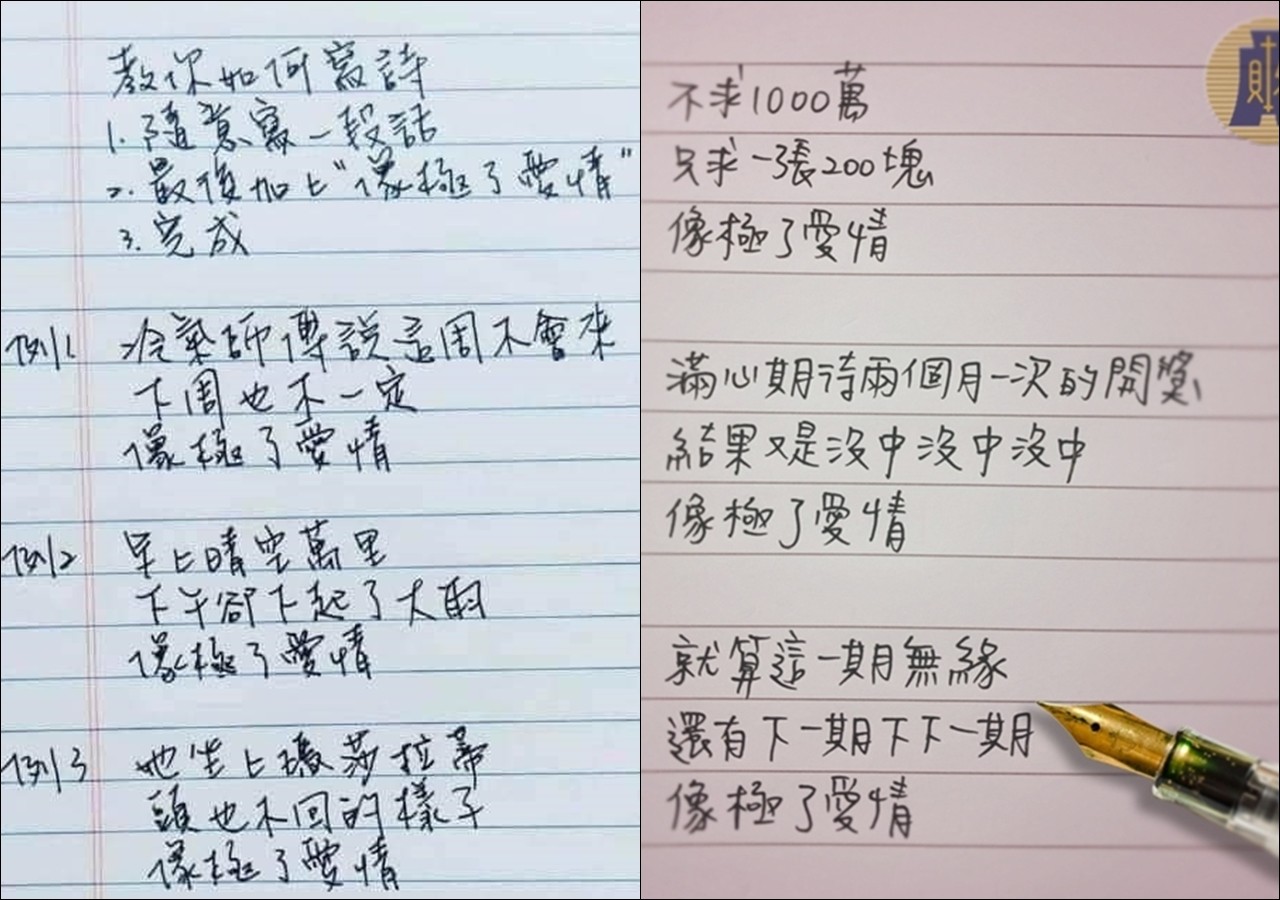 教你如何寫詩
1. 隨意寫一段話
2. 最後加上"像極了愛情"
3. 完成
例1 冷氣師傅說這周不會來
下周也不一定
像極了愛情
例2 早上晴空萬里
下午卻下起了大雨
像極了愛情
例3 她坐上瑪莎拉蒂
頭也不回的樣子
像極了愛情
財
不求1000萬
只求一張200塊
像極了愛情
滿心期待兩個月一次的開獎
結果又是沒中沒中沒中
像極了愛情
就算這一期無緣
還有下一期下下一期
像極了愛情